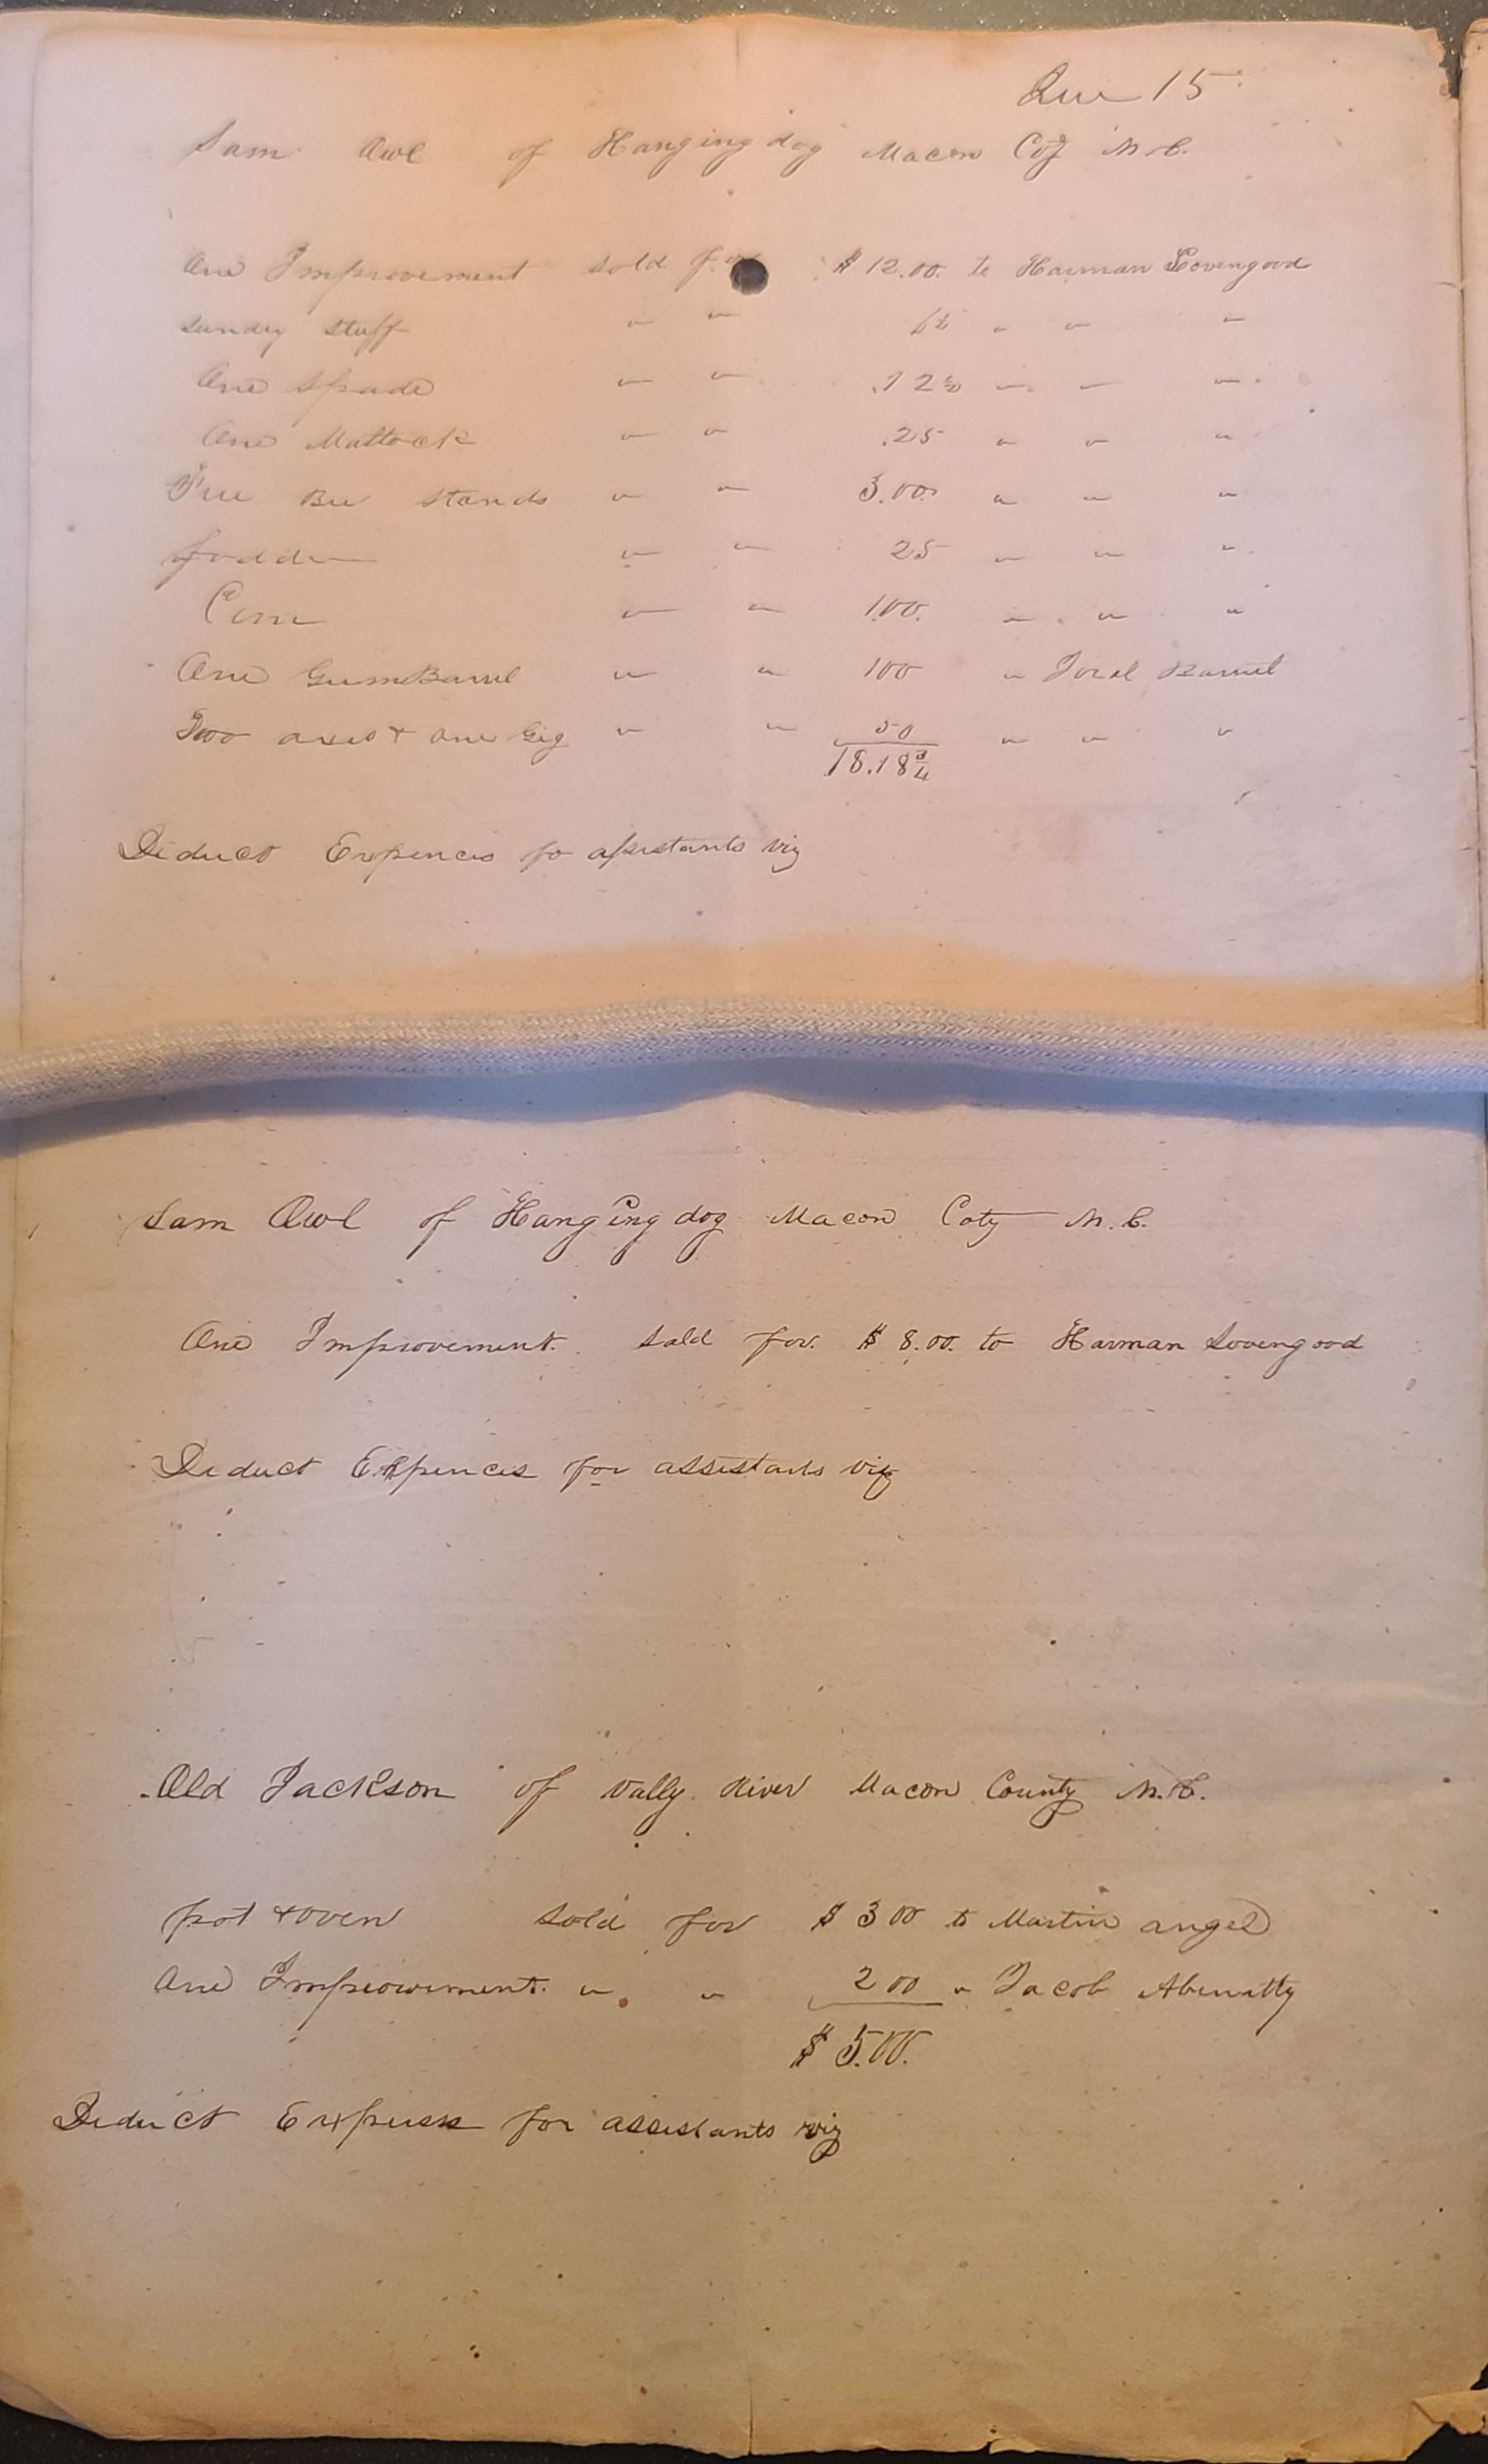 15
Sam Owl of Hanging dog Macon Coty N.C.
One Improvement sold for $12.00. to Harman Lovengood
Sundry Stuff " " 6¼ " " "
One Spade " " .12½ " " "
One Mattock " " .25 " " "
Bee Stands " " 3.00 " " "
fodder " " 25 " " "
Corn " " 1.00. " " "
One Gum Barrel " " 100 "
Two axes + one Gig " " 50 " " "
18.18¾
Deduct Expences fo assistants viz
Sam Owl of Hanging dog Macon Coty N.C.
One Improvement. Sold for. $8.00. to Harman Lovengood
Deduct Expences for assistants viz
Old Jackson of Vally River Macon County N.C.
pot + oven Sold for $3 00 to Martin angel
One Improvement. " " 2 00 " Jacob Abernatty
$5.00.
Deduct Expences for assistants viz